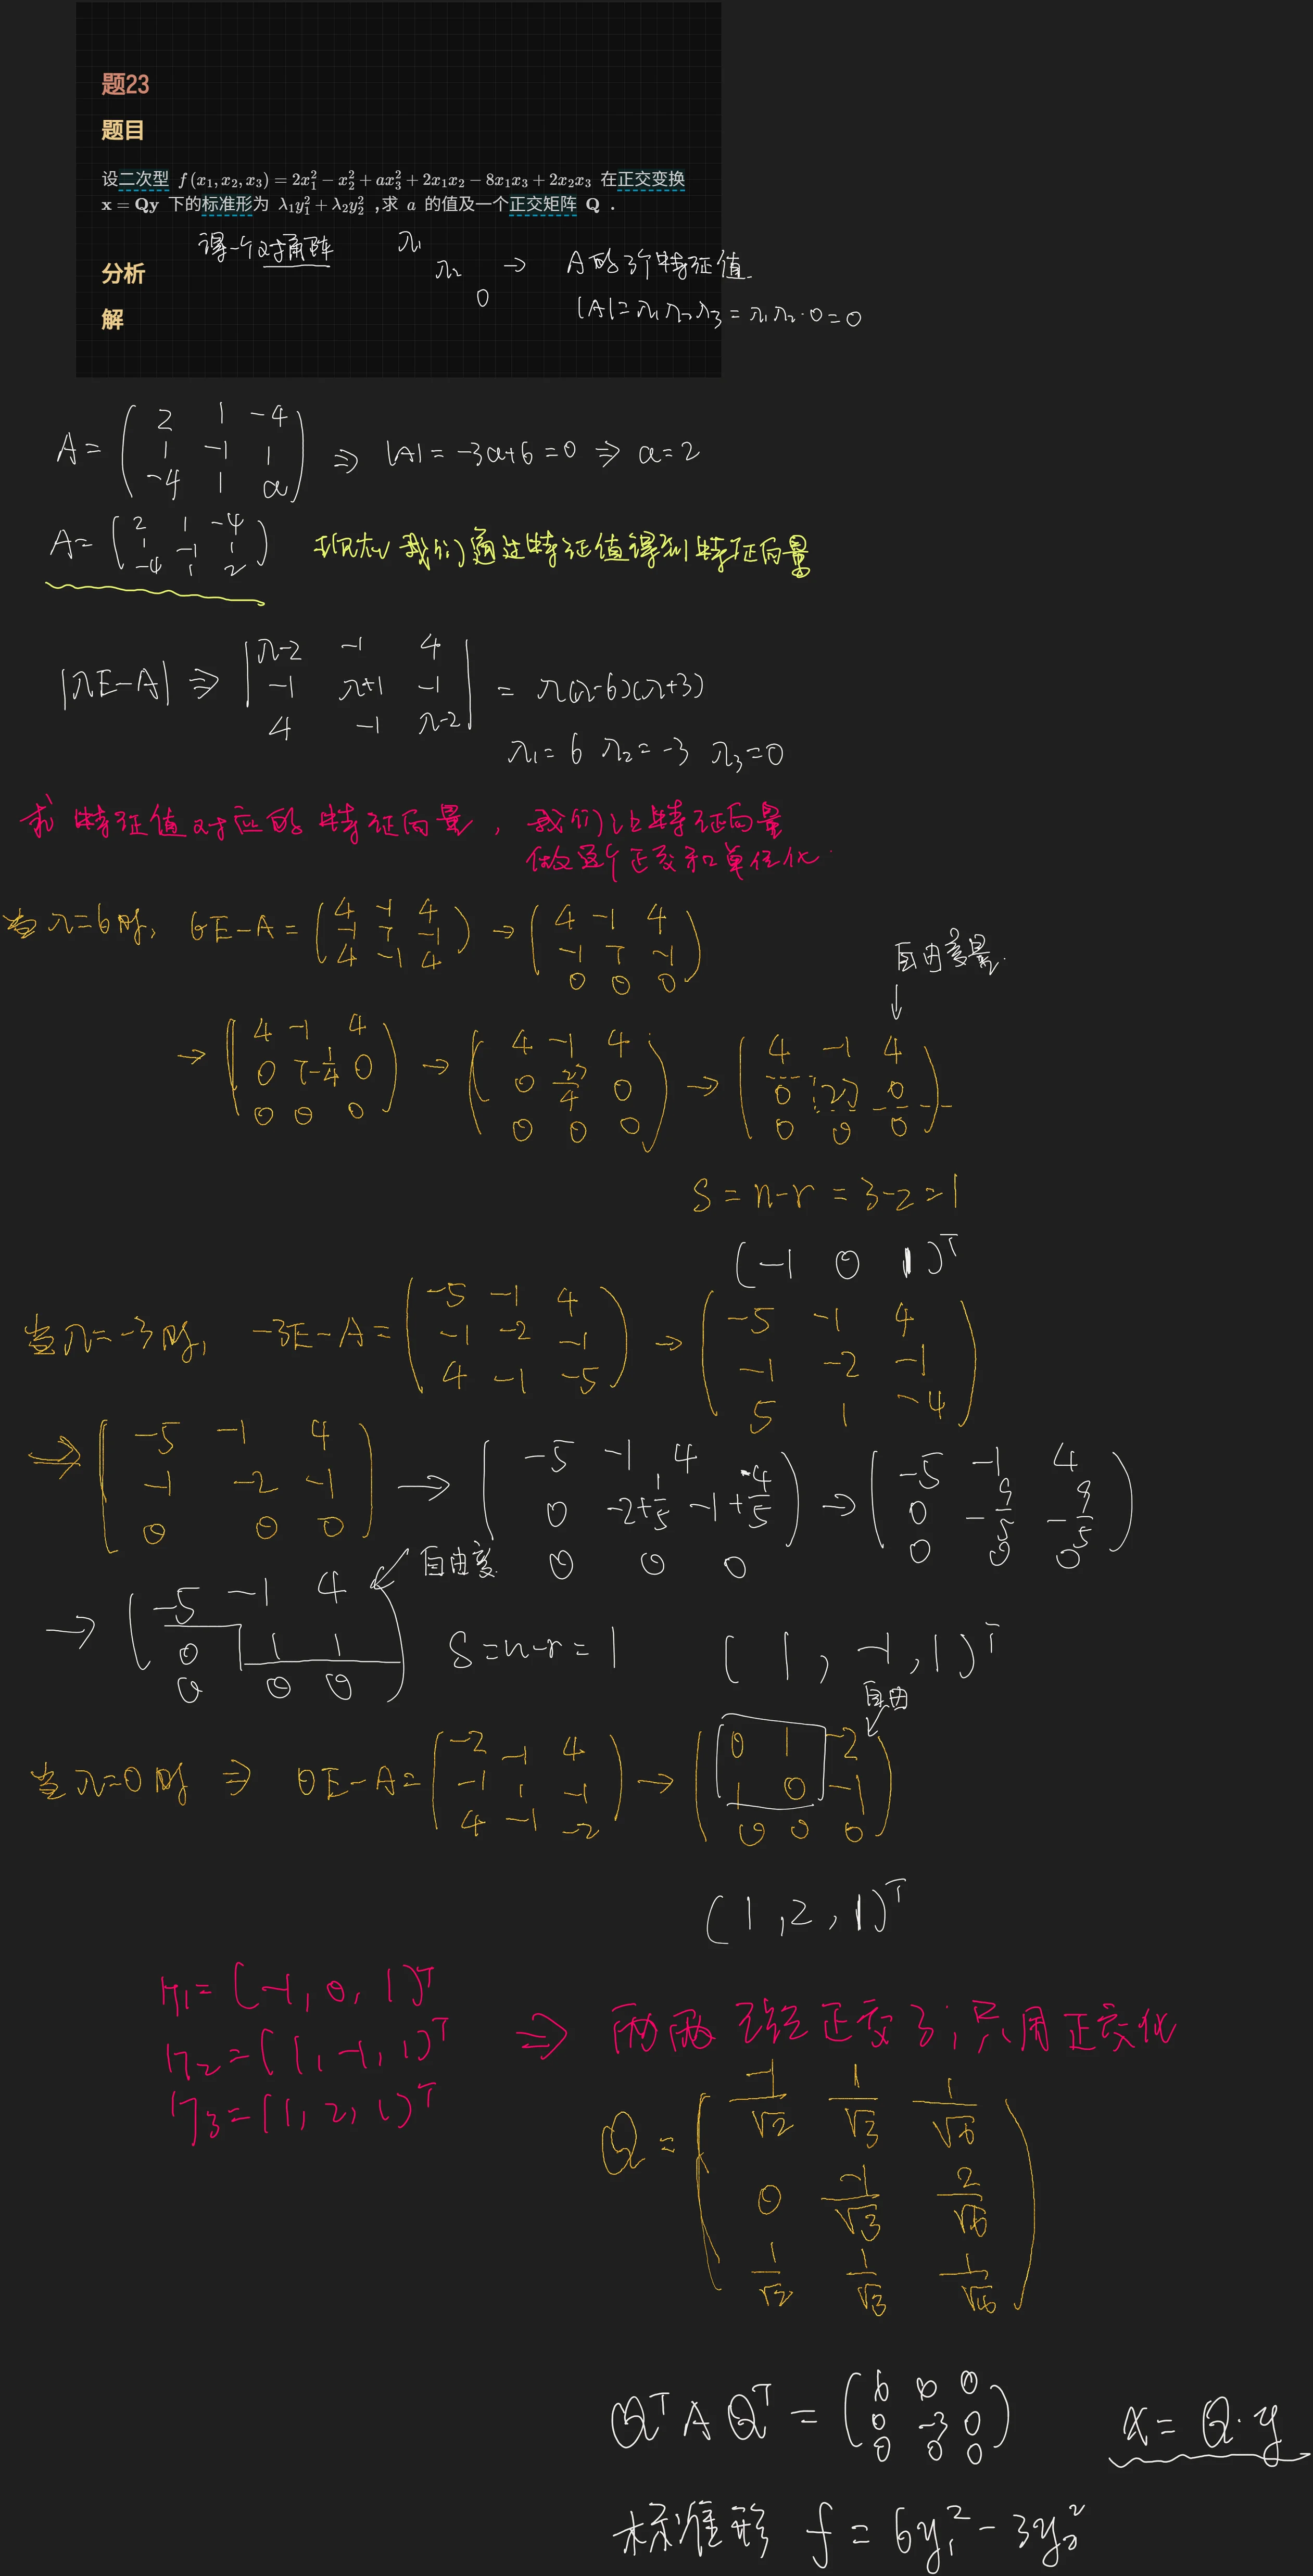 题23
题目
设二次型 f(x₁,x₂,x₃) = 2x₁² − x₂² + ax₃² + 2x₁x₂ − 8x₁x₃ + 2x₂x₃ 在正交变换
x = Qy 下的标准形为 λ₁y₁² + λ₂y₂² ,求 a 的值及一个正交矩阵 Q .
得一个对角阵 λ₁ λ₂ 0 → A的3个特征值.
分析
|A|=λ₁λ₂λ₃=λ₁λ₂·0=0
解
A= ( 2 1 -4
1 -1 1
-4 1 a ) ⇒ |A|=-3a+6=0 ⇒ a=2
A= ( 2 1 -4
1 -1 1
-4 1 2 ) 现在我们通过特征值得到特征向量
|λE-A| ⇒ | λ-2 -1 4
-1 λ+1 -1
4 -1 λ-2 | = λ(λ-6)(λ+3)
λ₁=6 λ₂=-3 λ₃=0
求特征值对应的特征向量, 我们让特征向量
做这个正交和单位化.
当λ=6时, 6E-A= ( 4 -1 4
-1 7 -1
4 -1 4 ) → ( 4 -1 4
-1 7 -1
0 0 0 )
自由变量.
↓
→ ( 4 -1 4
0 7-1/4 0
0 0 0 ) → ( 4 -1 4
0 27/4 0
0 0 0 ) → ( 4 -1 4
0 27 0
0 0 0 )
S=n-r=3-2=1
(-1 0 1)ᵀ
当λ=-3时, -3E-A= ( -5 -1 4
-1 -2 -1
4 -1 -5 ) → ( -5 -1 4
-1 -2 -1
5 1 -4 )
→ ( -5 -1 4
-1 -2 -1
0 0 0 ) → ( -5 -1 4
0 -2+1/5 -1+-4/5
0 0 0 ) → ( -5 -1 4
0 -9/5 -9/5
0 0 0 )
自由变.
→ ( -5 -1 4
0 1 1
0 0 0 ) S=n-r=1 (1,-1,1)ᵀ
自由
当λ=0时 ⇒ 0E-A= ( -2 -1 4
-1 1 -1
4 -1 -2 ) → ( 0 1 -2
1 0 -1
0 0 0 )
(1,2,1)ᵀ
η₁=(-1,0,1)ᵀ
η₂=(1,-1,1)ᵀ ⇒ 两两已经正交了,只用正交化
η₃=(1,2,1)ᵀ
Q= ( -1/√2 1/√3 1/√6
0 -1/√3 2/√6
1/√2 1/√3 1/√6 )
QᵀAQᵀ = ( 6 0 0
0 -3 0
0 0 0 ) x=Q·y
标准形 f=6y₁²-3y₂²